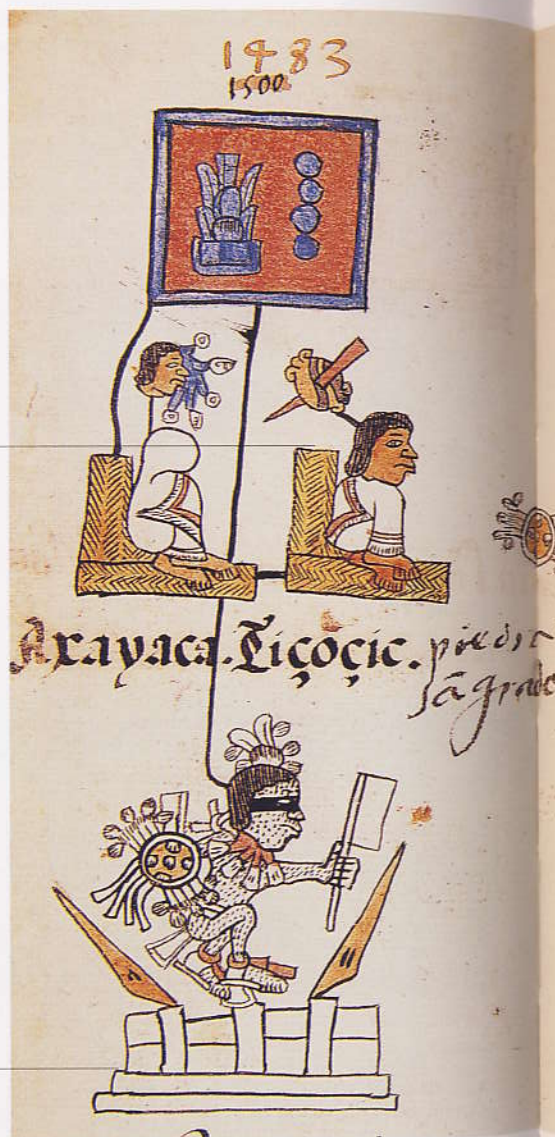 1483
1500
Axayaca. Tiçoçic. piedra
sãgrade